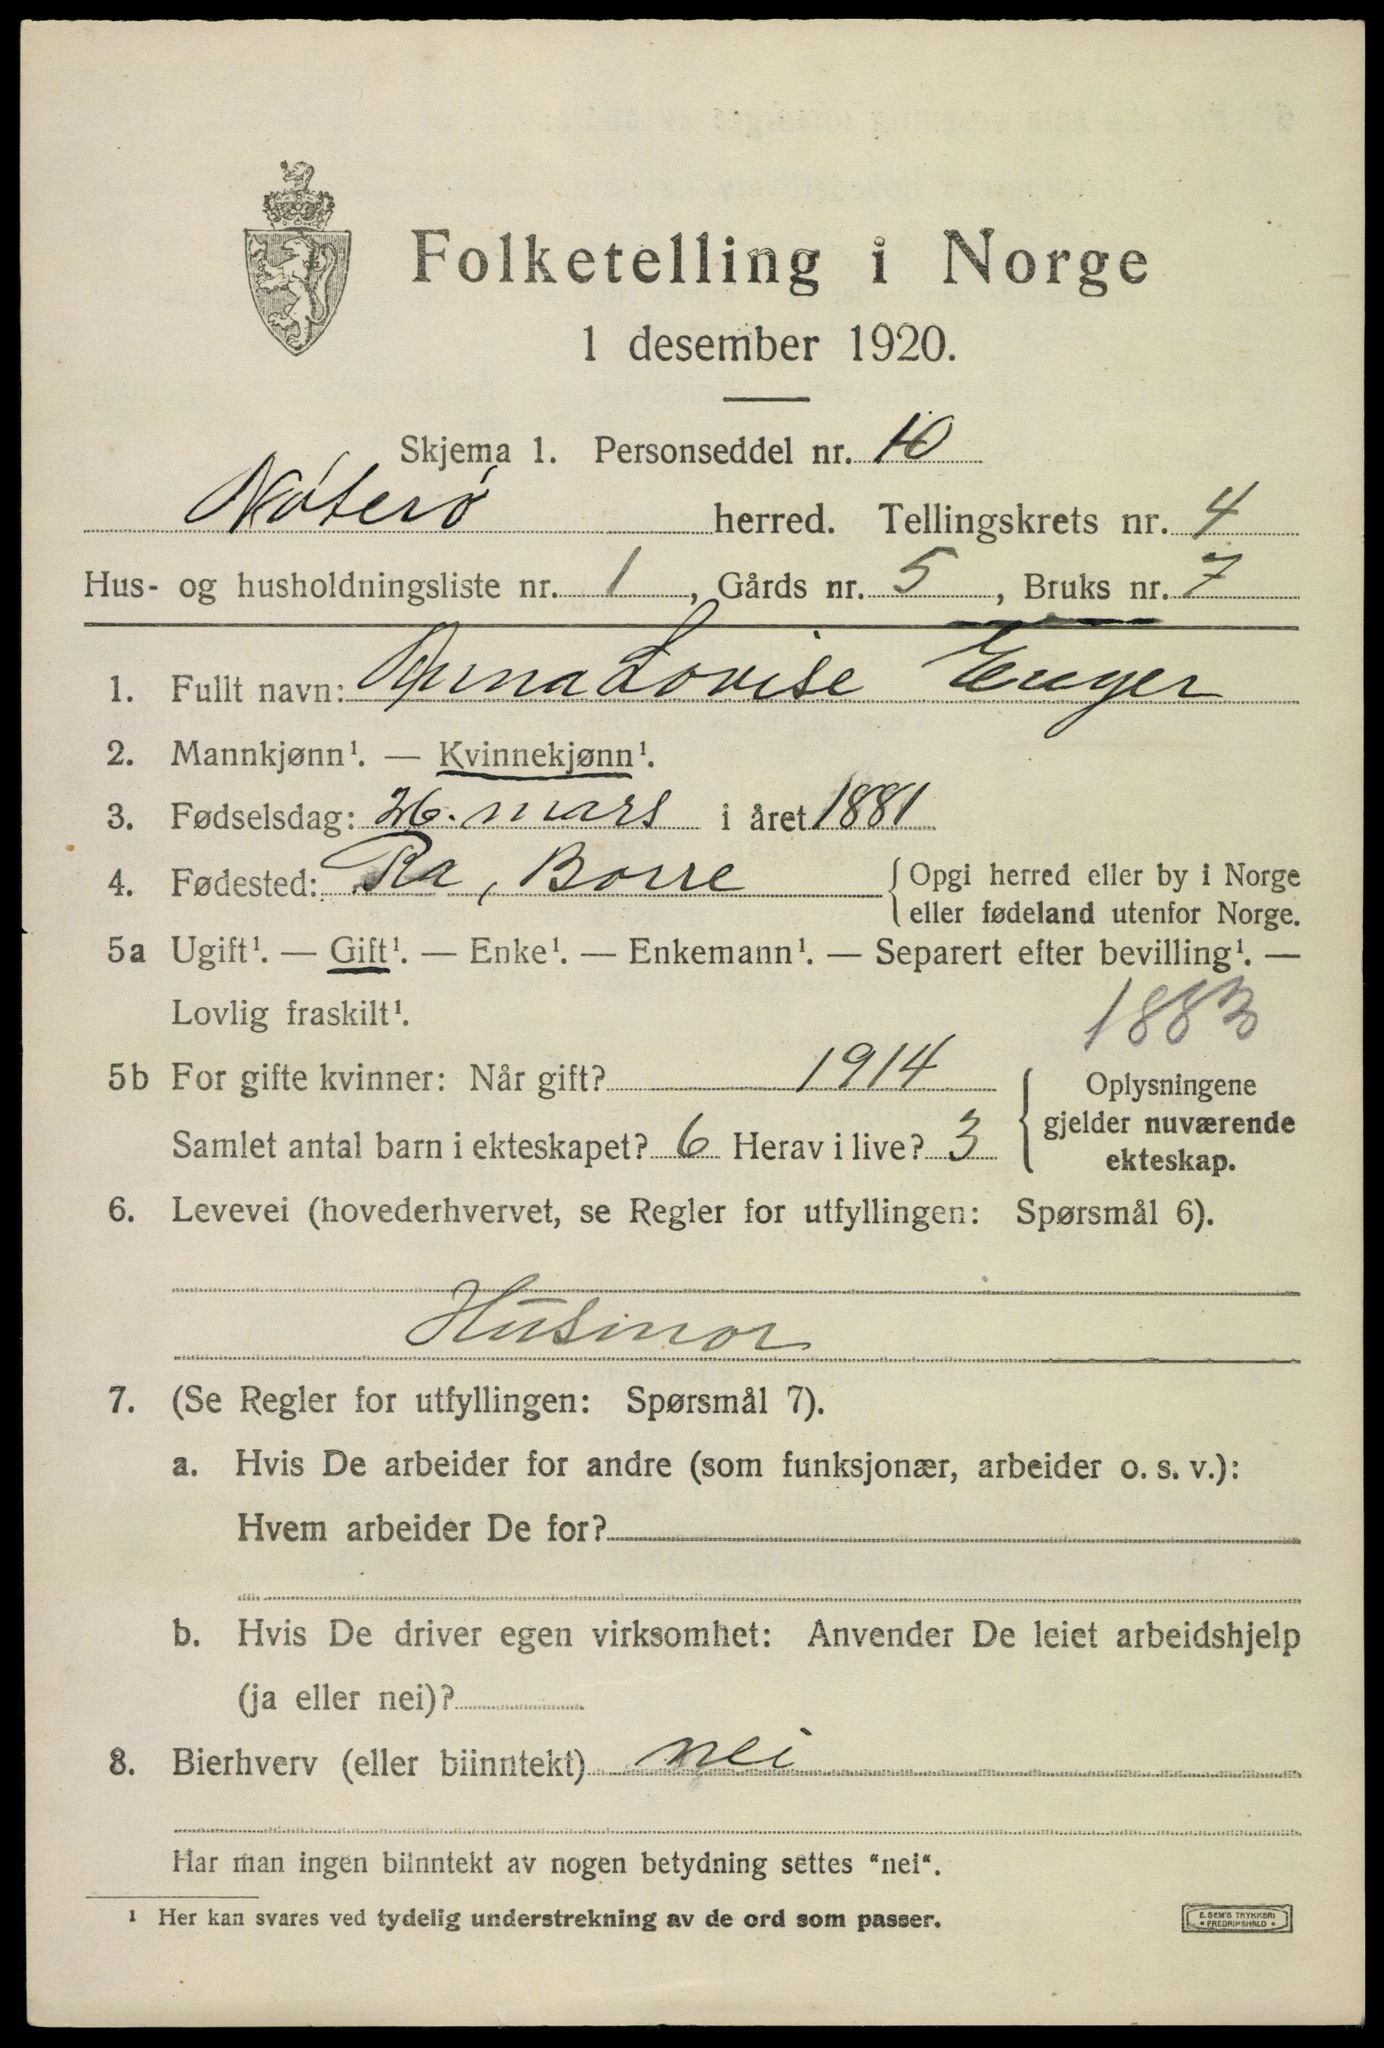 Folketelling i Norge
1 desember 1920.
Skjema 1. Personseddel nr. 10
Nøterø herred. Tellingskrets nr. 4
Hus- og husholdningsliste nr. 1, Gårds nr. 5, Bruks nr. 7
1. Fullt navn: Anna Lovise Enger
2. Mannkjønn¹. — Kvinnekjønn¹.
3. Fødselsdag: 26. mars i året 1881
4. Fødested: Ra, Borre { Opgi herred eller by i Norge
eller fødeland utenfor Norge.
5a Ugift¹. — Gift¹. — Enke¹. — Enkemann¹. — Separert efter bevilling¹. —
Lovlig fraskilt¹. 1883
5b For gifte kvinner: Når gift? 1914
Samlet antal barn i ekteskapet? 6 Herav i live? 3
{ Oplysningene
gjelder nuværende
ekteskap.
6. Levevei (hovederhvervet, se Regler for utfyllingen: Spørsmål 6).
Husmor
7. (Se Regler for utfyllingen: Spørsmål 7).
a. Hvis De arbeider for andre (som funksjonær, arbeider o. s. v.):
Hvem arbeider De for?
b. Hvis De driver egen virksomhet: Anvender De leiet arbeidshjelp
(ja eller nei)?
8. Bierhverv (eller biinntekt) nei
Har man ingen biinntekt av nogen betydning settes "nei".
¹ Her kan svares ved tydelig understrekning av de ord som passer.
E. SEM'S TRYKKERI
• FREDRIKSHALD •